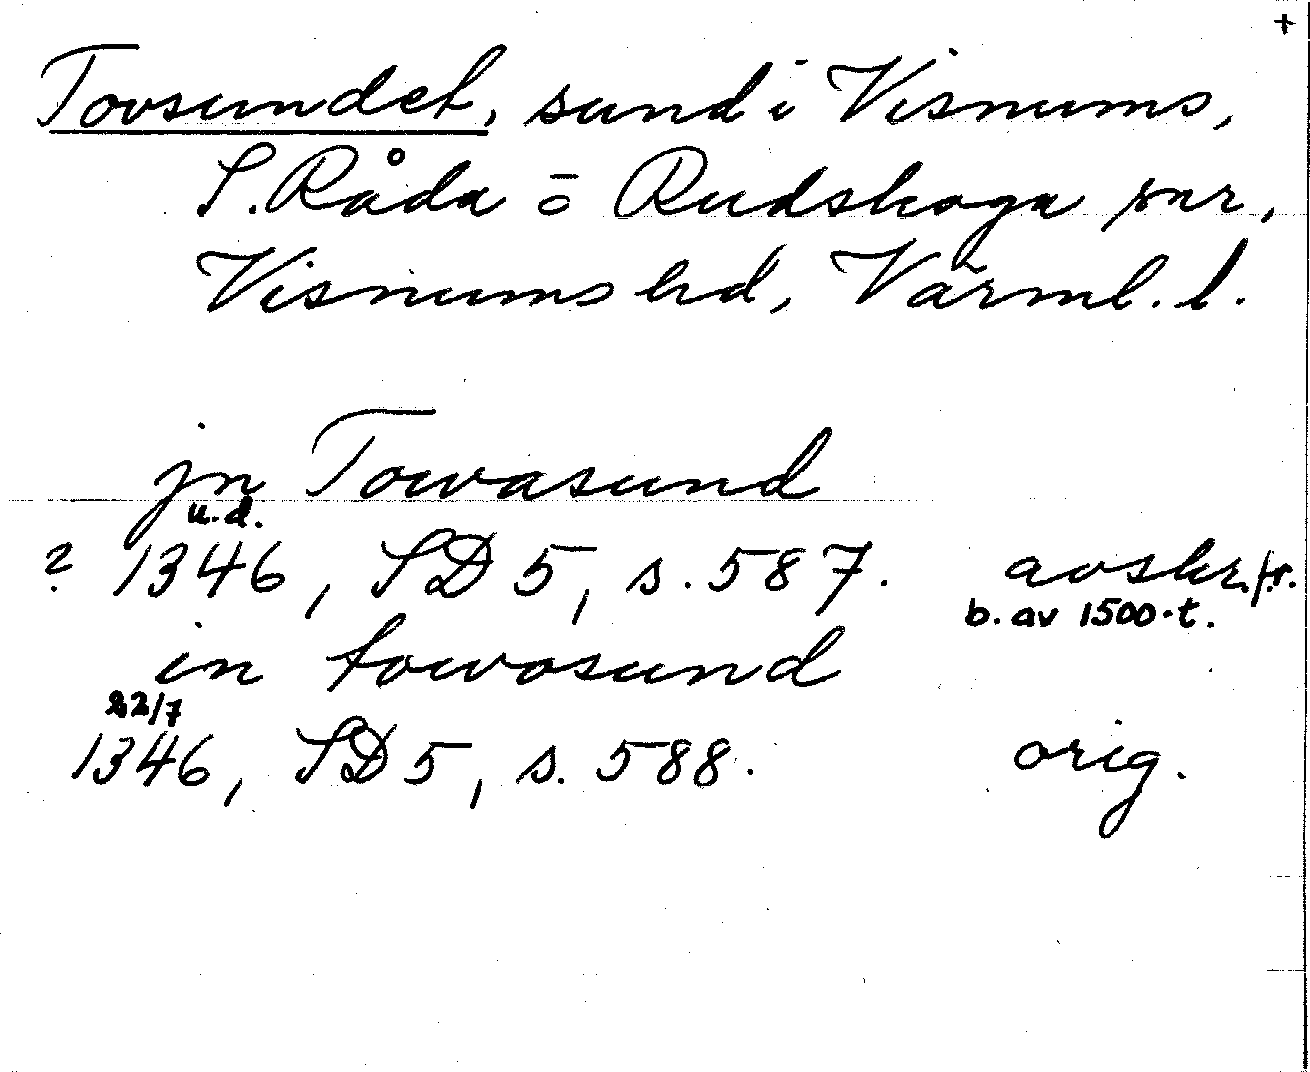 +
Tovsundet, sund i Visnums,
S. Råda o Rudskoga snr,
Visnums hd, Värml. l.
jn Towasund
u.d.
? 1346, SD 5, s. 587. avskr. fr.
b. av 1500-t.
in towosund
22/7
1346, SD 5, s. 588. orig.